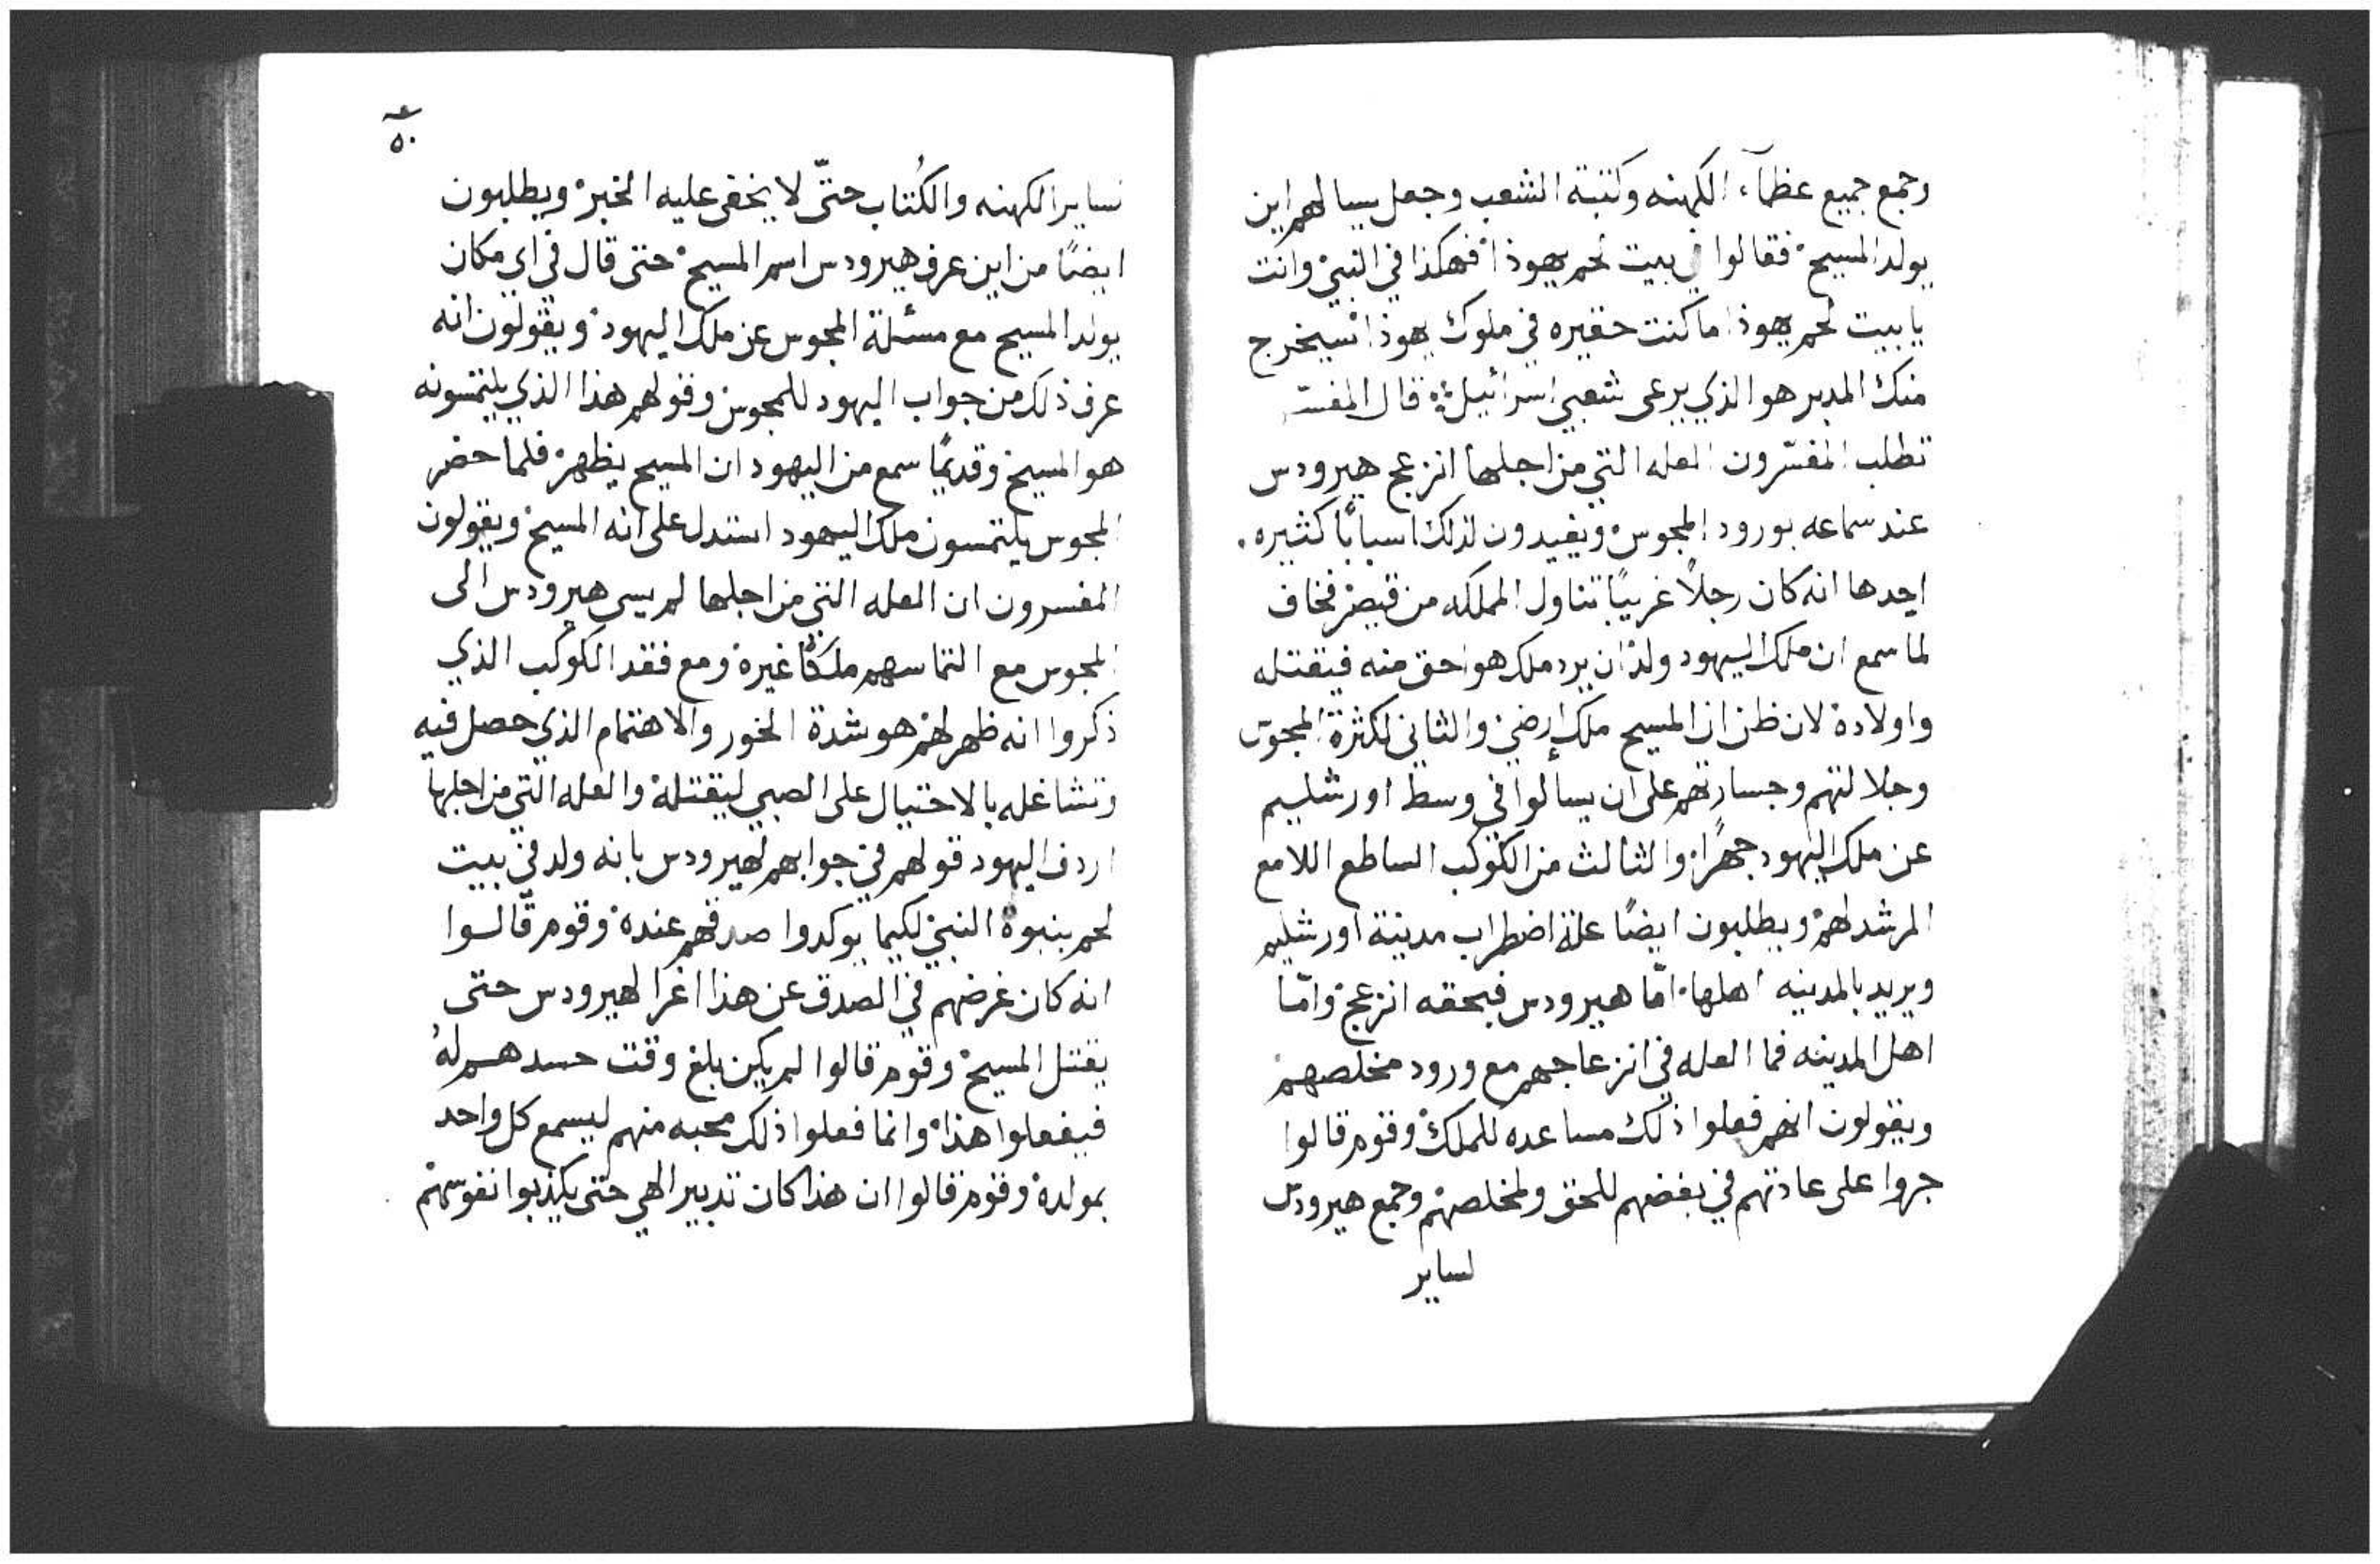 وجمع جميع عظمآء الكهنه وكتبة الشعب وجعل يسالهم اين
يولد المسيح فقالوا في بيت لحم يهوذا فهكذا في النبي وانت
يا بيت لحم يهوذا ما كنت حقيره في ملوك يهوذا سيخرج
منك المدبر هو الذي يرعى شعبي اسرائيل قال المفسّر
تطلب المفسّرون العله التي من اجلها انزعج هيرودس
عند سماعه بورود المجوس ويفيدون لذلك اسبابًا كثيره.
احدها انه كان رجلاً غريبًا تناول المملكه من قيصر فخاف
لما سمع ان ملك اليهود ولد ان يرد ملك هو احق منه فيقتله
واولاده لان ظن ان المسيح ملك ارضي والثاني لكثرة المجوس
وجلالتهم وجسارتهم على ان يسالوا في وسط اورشليم
عن ملك اليهود جهرًا والثالث من الكوكب الساطع اللامع
المرشد لهم ويطلبون ايضًا علة اضطراب مدينة اورشليم
ويريد بالمدينه اهلها امّا هيرودس فبحقه انزعج وامّا
اهل المدينه فما العله في انزعاجهم مع ورود مخلصهم
ويقولون انهم فعلوا ذلك مساعده للملك وقوم قالوا
جروا على عادتهم في بغضهم للحق ولمخلصهم وجمع هيرودس
لساير
٥٠
لساير الكهنه والكُتاب حتّى لا يخفى عليه الخبر ويطلبون
ايضًا من اين عرف هيرودس اسم المسيح حتى قال في اي مكان
يولد المسيح مع مسئلة المجوس عن ملك اليهود ويقولون انه
عرف ذلك من جواب اليهود للمجوس وقولهم هذا الذي يلتمسونه
هو المسيح وقديمًا سمع من اليهود ان المسيح يظهر فلما حضر
المجوس يلتمسون ملك اليهود استدل على انه المسيح ويقولون
المفسرون ان العله التي من اجلها لم يسى هيرودس الى
المجوس مع التماسهم ملكًا غيره ومع فقد الكوكب الذي
ذكروا انه ظهر لهم هو شدة الخور والاهتمام الذي حصل فيه
وتشاغله بالاحتيال على الصبي ليقتله والعله التي من اجلها
اردف اليهود قولهم في جوابهم لهيرودس بانه ولد في بيت
لحم بنبوة النبي لكيما يوكدوا صدقهم عنده وقوم قالوا
انه كان غرضهم في الصدق عن هذا اغرا لهيرودس حتى
يقتل المسيح وقوم قالوا لم يكن بلغ وقت حسدهم لهُ
فيفعلوا هذا وانما فعلوا ذلك محبه منهم ليسمع كل واحد
بمولده وقوم قالوا ان هذا كان تدبير الهي حتى يكذبوا نفوسهم